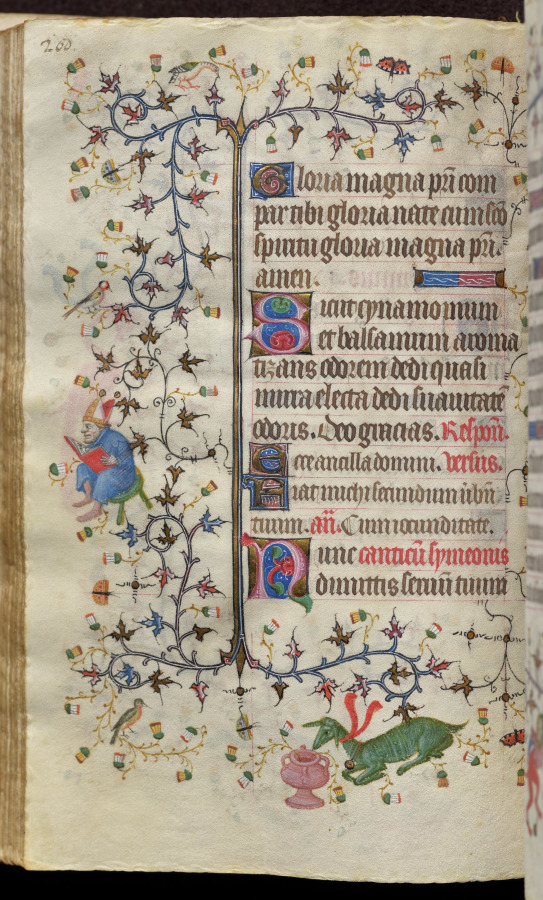 260.
Gloria magna pr̄i com
par tibi gloria nate cum sc̄o
spiritu gloria magna pr̄i.
amen.
Sicut cynamomum
et balsamum aroma
tizans odorem dedi quasi
mirra electa dedi suavitatē
odoris. Deo gracias. Respon̄.
Ecce ancilla domini. versus.
Fiat michi secundum v̄bū
tuum. an̄. Cum iocunditate.
Nunc canticū symeonis
dimittis servū tuum